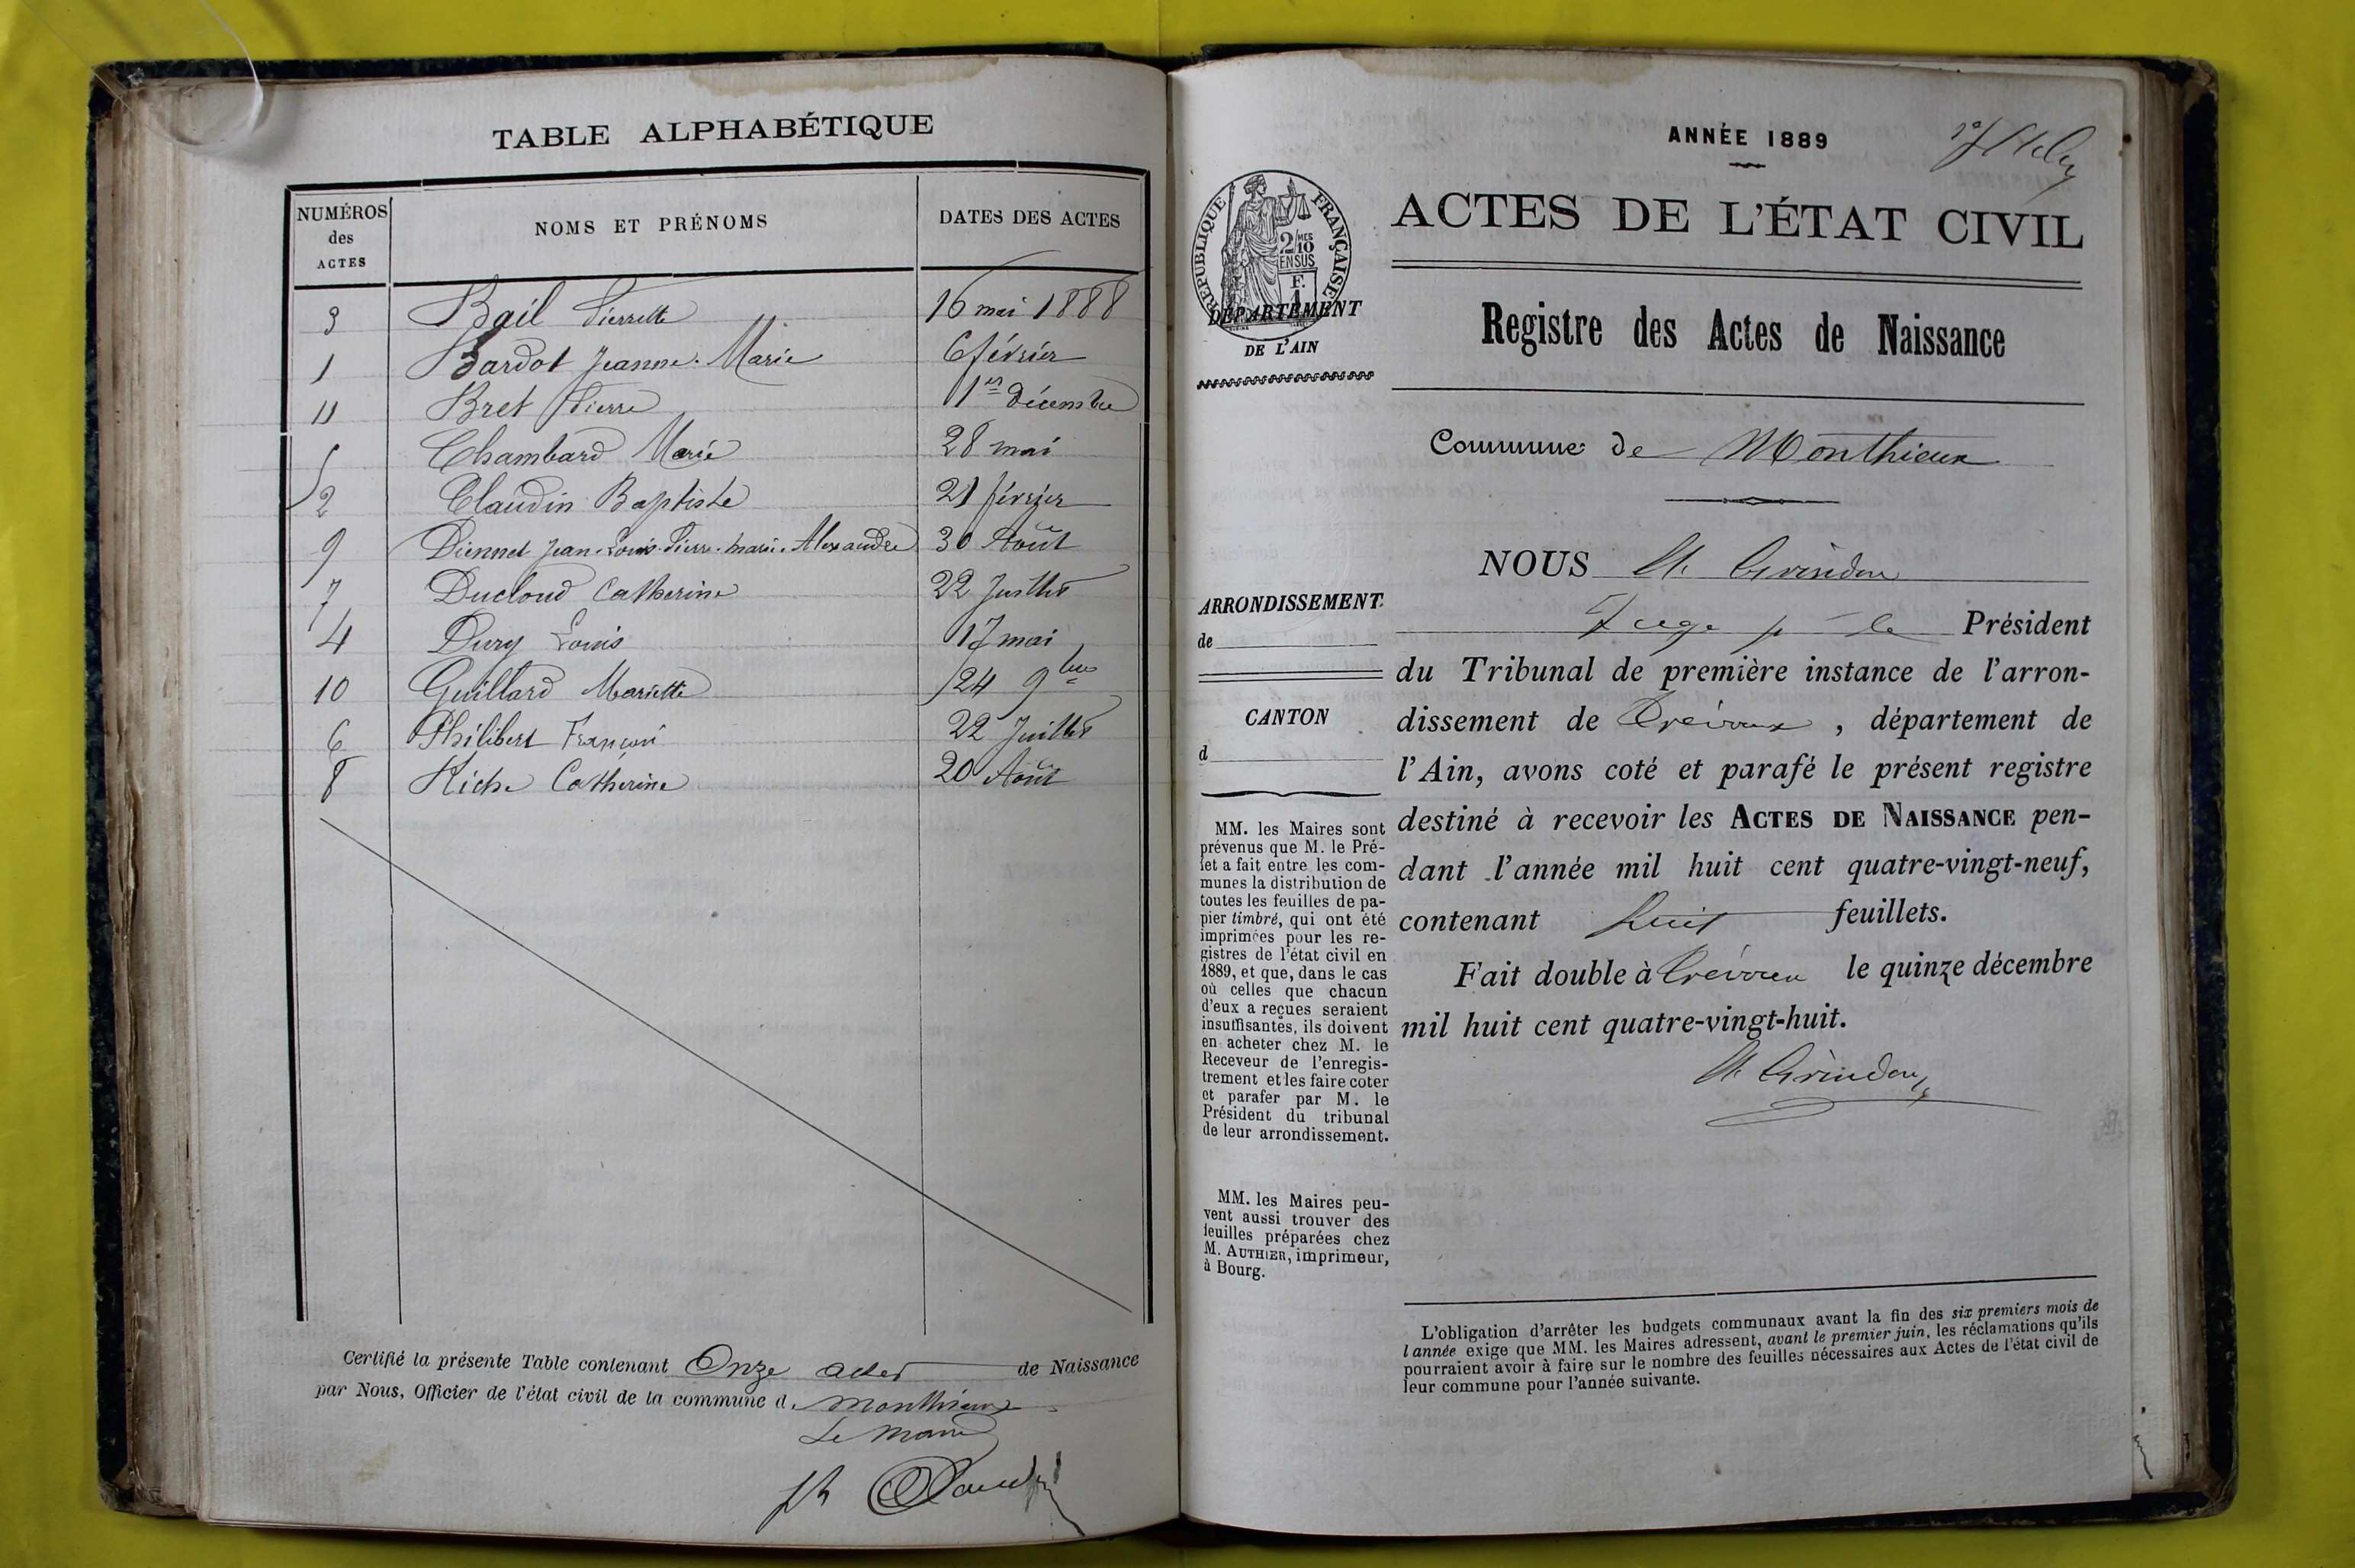 TABLE ALPHABÉTIQUE
NUMÉROS des ACTES
NOMS ET PRÉNOMS
DATES DES ACTES
3 Bail Pierrette 16 mai 1888
1 Bardot Jeanne-Marie 6 février
11 Bret Pierre 1er Décembre
5 Chambard Marie 28 mai
2 Claudin Baptiste 21 février
9 Diennet Jean-Louis-Pierre-Marie-Alexandre 30 Août
7 Ducloud Catherine 22 Juillet
4 Dury Louis 17 mai
10 Guillard Mariette 24 9bre
6 Philibert François 22 Juillet
8 Riche Catherine 20 Août
Certifié la présente Table contenant Onze actes de Naissance
par Nous, Officier de l'état civil de la commune d. Monthieux
Le Maire
ANNÉE 1889
ACTES DE L'ÉTAT CIVIL
RÉPUBLIQUE FRANÇAISE
2/10 MES
EN SUS
F.
1
DÉPARTEMENT
DE L'AIN
Registre des Actes de Naissance
Commune de Monthieux
NOUS M. Grindon
Juge pr le Président
du Tribunal de première instance de l'arron-
dissement de Trévoux, département de
l'Ain, avons coté et parafé le présent registre
destiné à recevoir les ACTES DE NAISSANCE pen-
dant l'année mil huit cent quatre-vingt-neuf,
contenant huit feuillets.
Fait double à Trévoux le quinze décembre
mil huit cent quatre-vingt-huit.
M. Grindon
ARRONDISSEMENT
de
CANTON
d
MM. les Maires sont
prévenus que M. le Pré-
fet a fait entre les com-
munes la distribution de
toutes les feuilles de pa-
pier timbré, qui ont été
imprimées pour les re-
gistres de l'état civil en
1889, et que, dans le cas
où celles que chacun
d'eux a reçues seraient
insuffisantes, ils doivent
en acheter chez M. le
Receveur de l'enregis-
trement et les faire coter
et parafer par M. le
Président du tribunal
de leur arrondissement.
MM. les Maires peu-
vent aussi trouver des
feuilles préparées chez
M. AUTHIER, imprimeur,
à Bourg.
L'obligation d'arrêter les budgets communaux avant la fin des six premiers mois de
l'année exige que MM. les Maires adressent, avant le premier juin, les réclamations qu'ils
pourraient avoir à faire sur le nombre des feuilles nécessaires aux Actes de l'état civil de
leur commune pour l'année suivante.